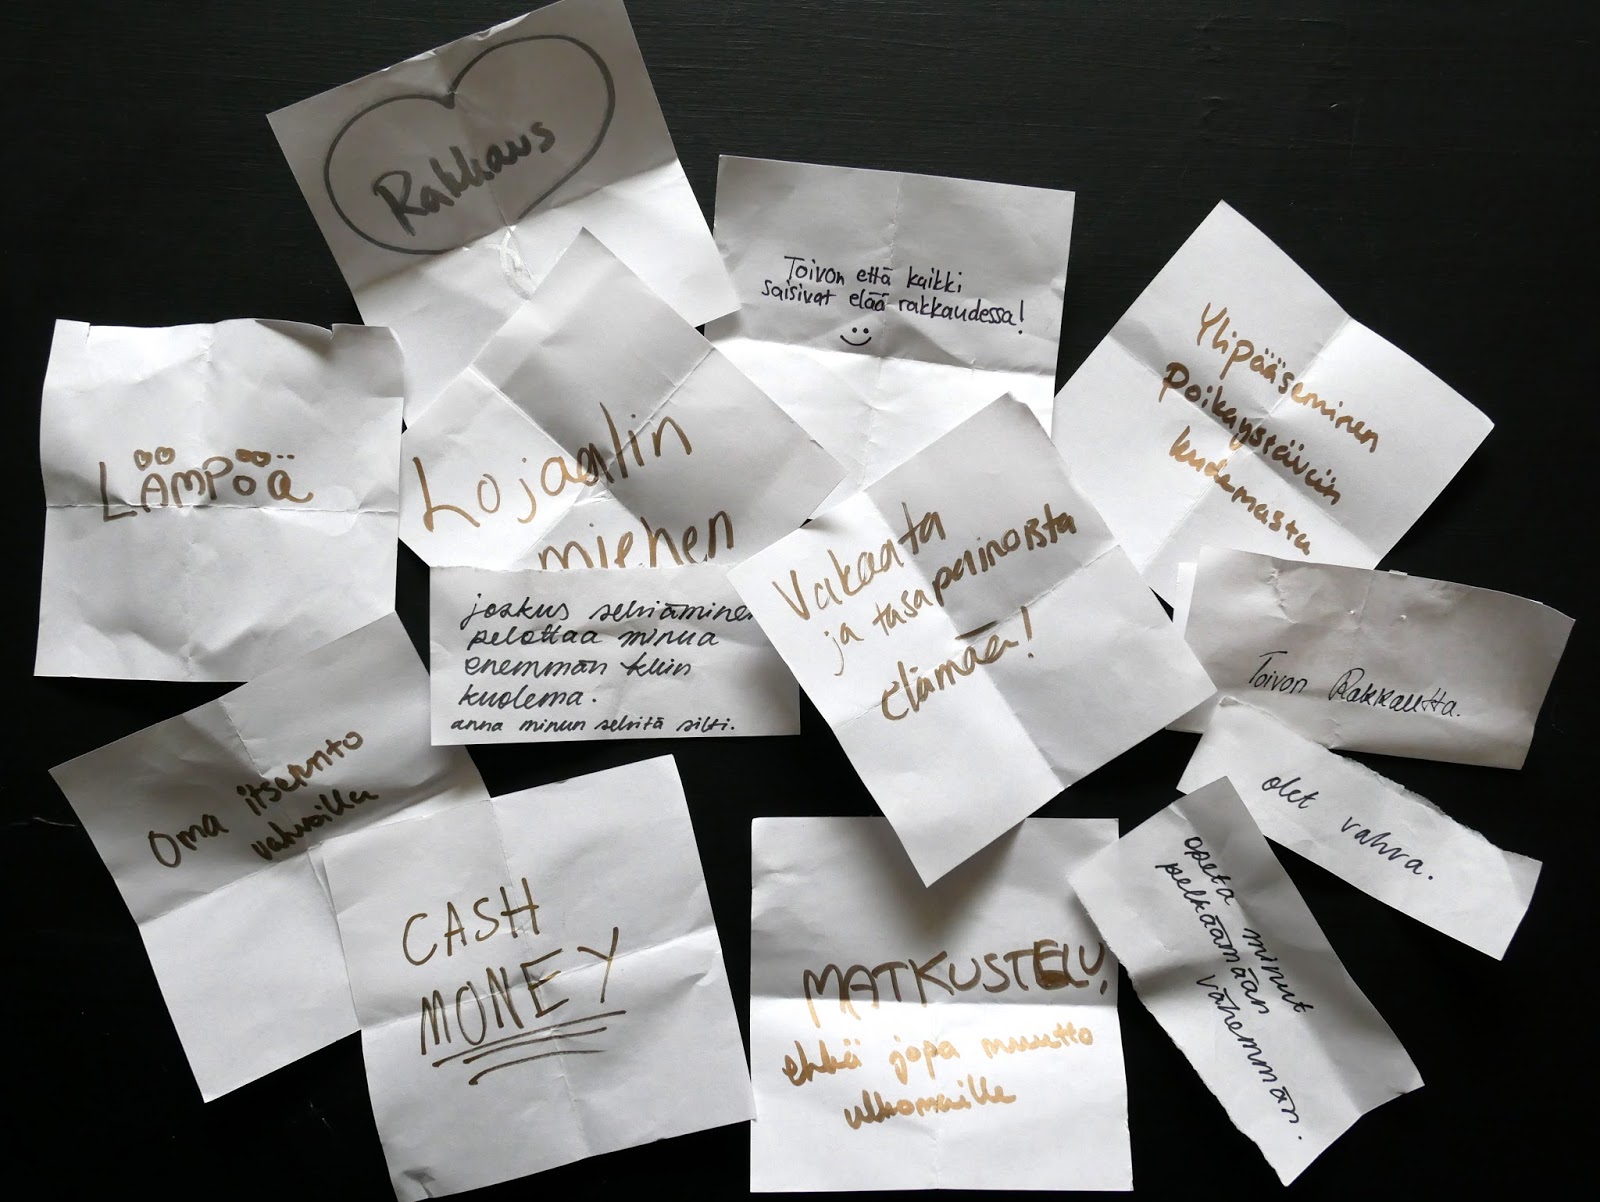 Rakkaus
Toivon että kaikki
saisivat elää rakkaudessa!
Ylipääseminen
Poikaystävän
kuolemasta
LÄMPÖä
Lojaalin
miehen
Vakaata
ja tasapainoista
elämää!
joskus selviäminen
pelottaa minua
enemmän kuin
kuolema.
anna minun selvitä silti.
Toivon Rakkautta.
olet vahva.
Oma itserinto
vahvoilla
CASH
MONEY
MATKUSTELU,
ehkä jopa muutto
ulkomaille
opeta minut
pelkäämään
vähemmän.